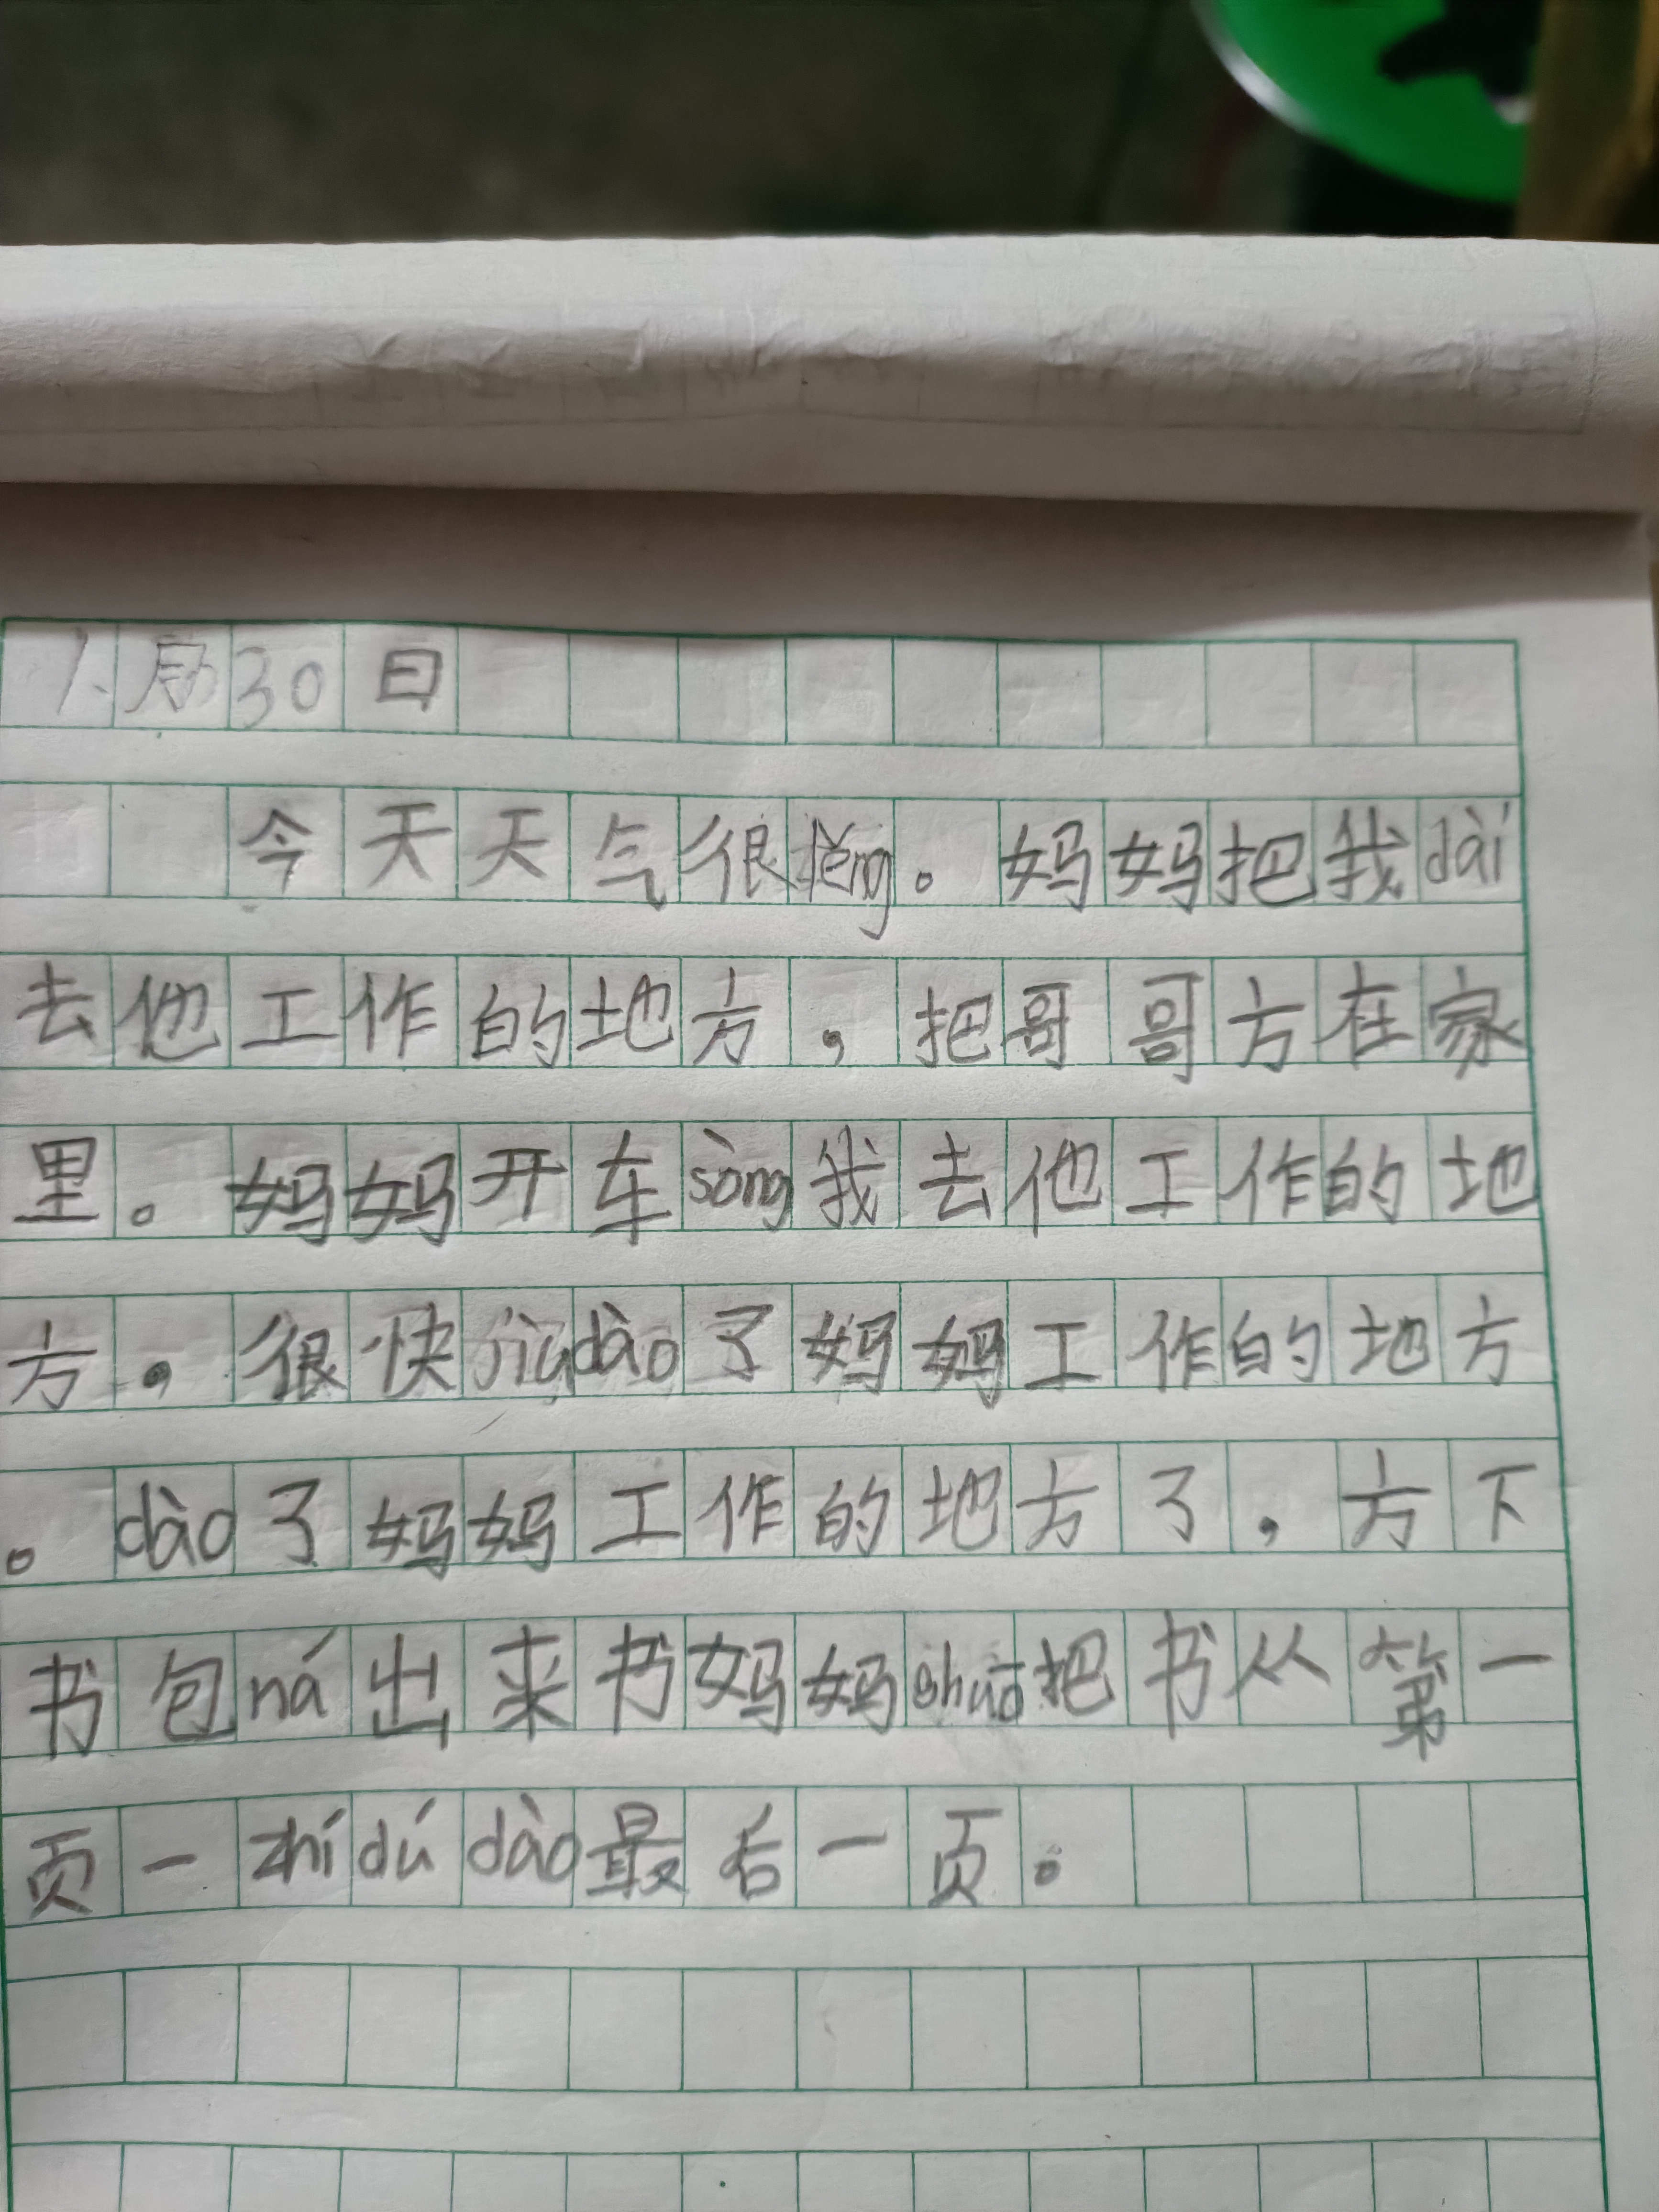 1月30日
今天天气很lěng。妈妈把我dài
去他工作的地方，把哥哥方在家
里。妈妈开车sòng我去他工作的地
方，很快jiùdào了妈妈工作的地方
。dào了妈妈工作的地方了，方下
书包ná出来书妈妈shuō把书从第一
页一zhídúdào最后一页。